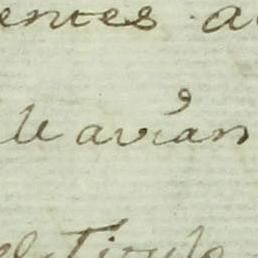 entes a
lleavian
el Titulo